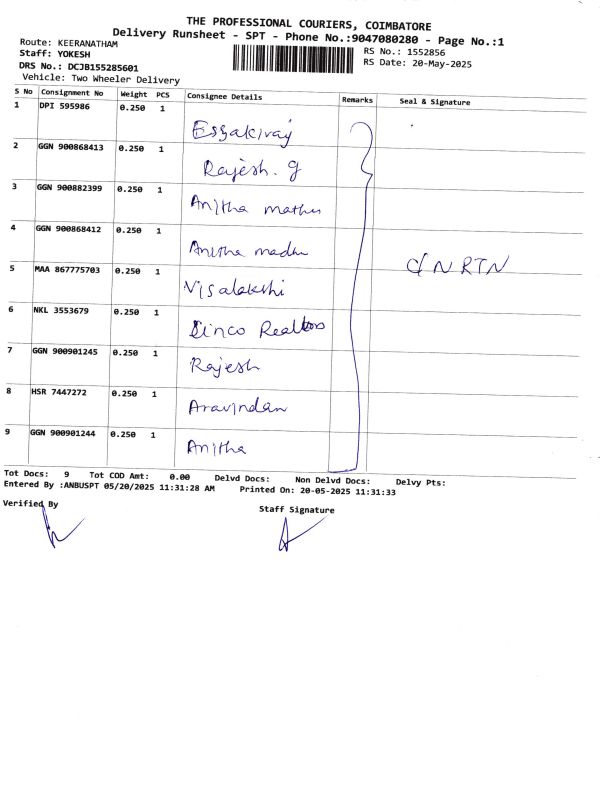 THE PROFESSIONAL COURIERS, COIMBATORE
Delivery Runsheet - SPT - Phone No.:9047080280 - Page No.:1
Route: KEERANATHAM
Staff: YOKESH
DRS No.: DCJB155285601
Vehicle: Two Wheeler Delivery
RS No.: 1552856
RS Date: 20-May-2025
S No Consignment No Weight PCS Consignee Details Remarks Seal & Signature
1 DPI 595986 0.250 1 Essakiraj
2 GGN 900868413 0.250 1 Rajesh. g
3 GGN 900882399 0.250 1 Anitha mathu
4 GGN 900868412 0.250 1 Anitha madhu
5 MAA 867775703 0.250 1 Visalakshi
C/N RTN
6 NKL 3553679 0.250 1 Realtors
7 GGN 900901245 0.250 1 Rajesh
8 HSR 7447272 0.250 1 Aravindan
9 GGN 900901244 0.250 1 Anitha
Tot Docs: 9 Tot COD Amt: 0.00 Delvd Docs: Non Delvd Docs: Delvy Pts:
Entered By :ANBUSPT 05/20/2025 11:31:28 AM Printed On: 20-05-2025 11:31:33
Verified By Staff Signature